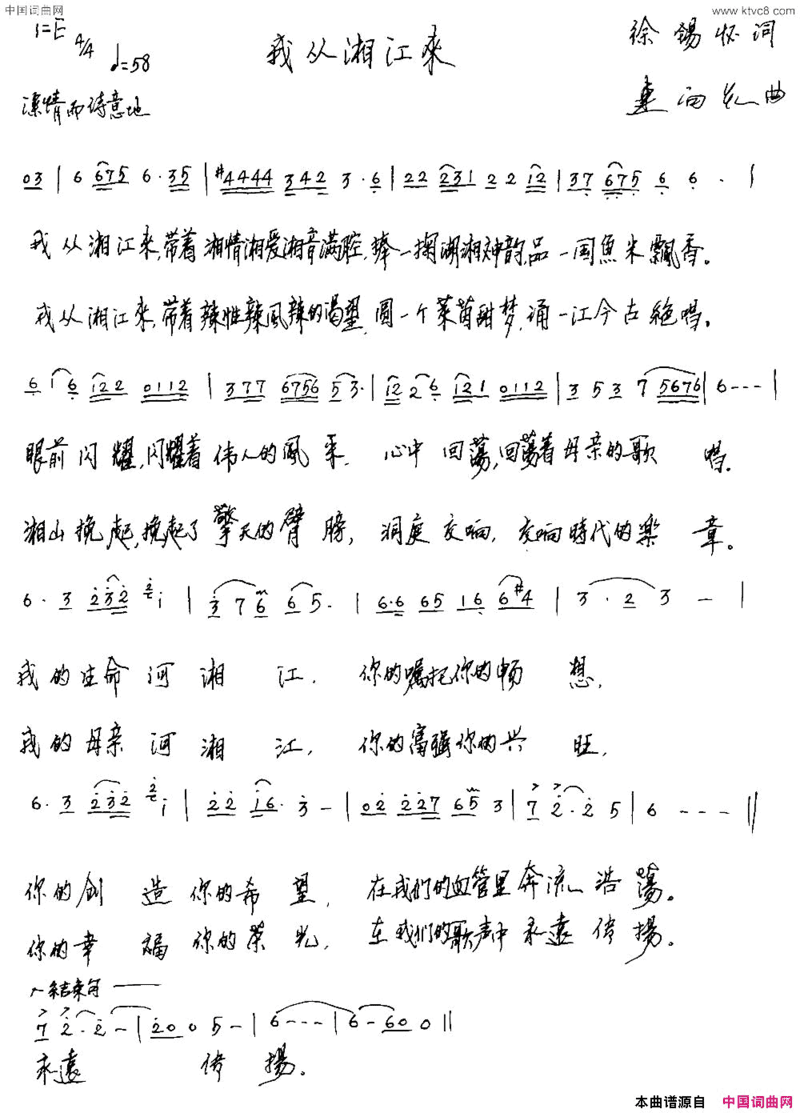 中国词曲网
www.ktvc8.com
1=E 4/4 ♩=58
我从湘江來
徐錫怀词
曲
深情而诗意地
03 | 6 675 6·35 | #4444 342 3·6 | 22 231 22 12 | 37 675 6 6 · |
我从湘江來,带着湘情湘爱湘音满腔,捧一掬湖湘神韵,品一国魚米飄香。
我从湘江來,带着辣性辣風辣的渴望,圆一个莱茵甜梦,诵一江今古絶唱。
6 i 6 122 0112 | 377 6756 53· | 122 6 121 0112 | 353 7 5676 | 6--- |
眼前闪耀,闪耀着伟人的風采,心中回荡,回荡着母亲的歌唱.
湘山挽起,挽起了擎天的臂膀,洞庭交响,交响時代的樂章。
6·3 232 2 i | 3 7 6 6 5· | 6·6 65 16 6#4 | 3·2 3 — |
我的生命河湘江,你的嘱托你的畅想,
我的母亲河湘江,你的富强你的兴旺,
6·3 232 2 i | 22 16· 3— | 02 227 65 3 | 7 2·2 5 | 6 --- ||
你的創造你的希望,在我们的血管里奔流浩蕩。
你的幸福你的荣光,在我们的歌声中永遠传揚。
结束句
7 2·2 — | 200 5— | 6--- | 6-60 0 ||
永遠传揚。
本曲谱源自 中国词曲网